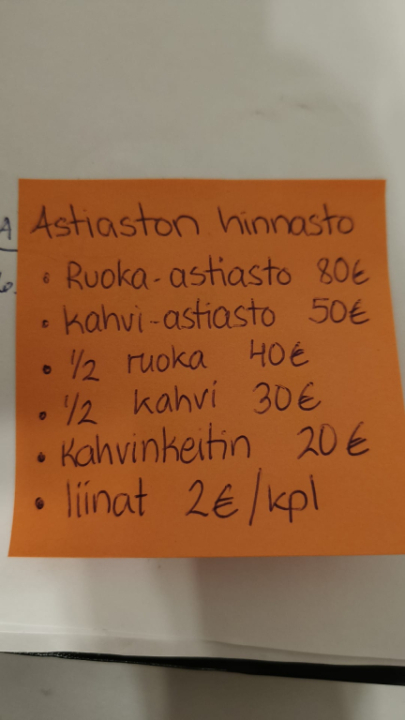 A
Astiaston hinnasto
• Ruoka-astiasto 80€
• Kahvi-astiasto 50€
• 1/2 ruoka 40€
• 1/2 kahvi 30€
• Kahvinkeitin 20€
• liinat 2€/kpl